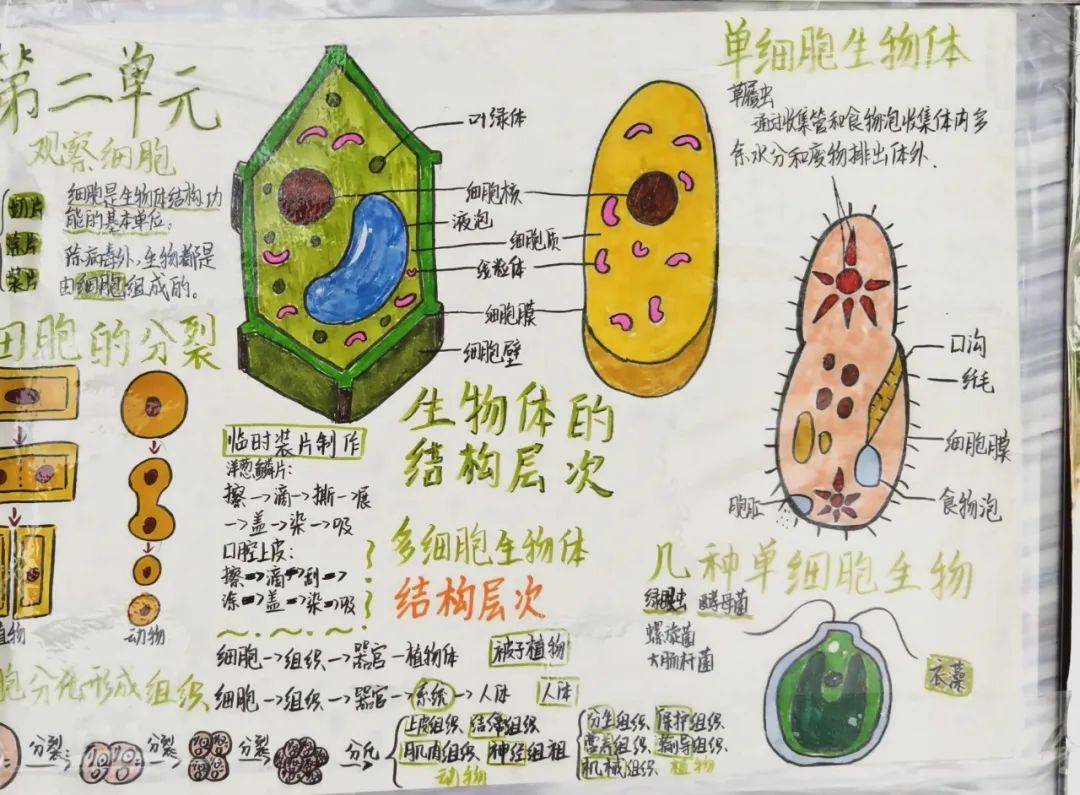 第二单元
观察细胞
切片
涂片
装片
细胞是生物体结构功
能的基本单位;
除病毒外,生物都是
由细胞组成的。
细胞的分裂
植物
动物
叶绿体
细胞核
液泡
细胞质
线粒体
细胞膜
细胞壁
单细胞生物体
草履虫
通过收集管和食物泡收集体内多
余水分和废物排出体外.
口沟
纤毛
细胞膜
食物泡
胞肛
临时装片制作
洋葱鳞片:
擦→滴→撕→展
→盖→染→吸
口腔上皮:
擦→滴→刮→
涂→盖→染→吸
生物体的
结构层次
多细胞生物体
结构层次
细胞→组织→器官—植物体 被子植物
细胞→组织→器官→系统→人体 人体
几种单细胞生物
酵母菌
螺旋菌
大肠杆菌
衣藻
胞分化形成组织
分裂
分裂
分裂
分化
上皮组织 结缔组织
肌肉组织 神经组组
动物
分生组织 保护组织
营养组织 输导组织
机械组织 植物